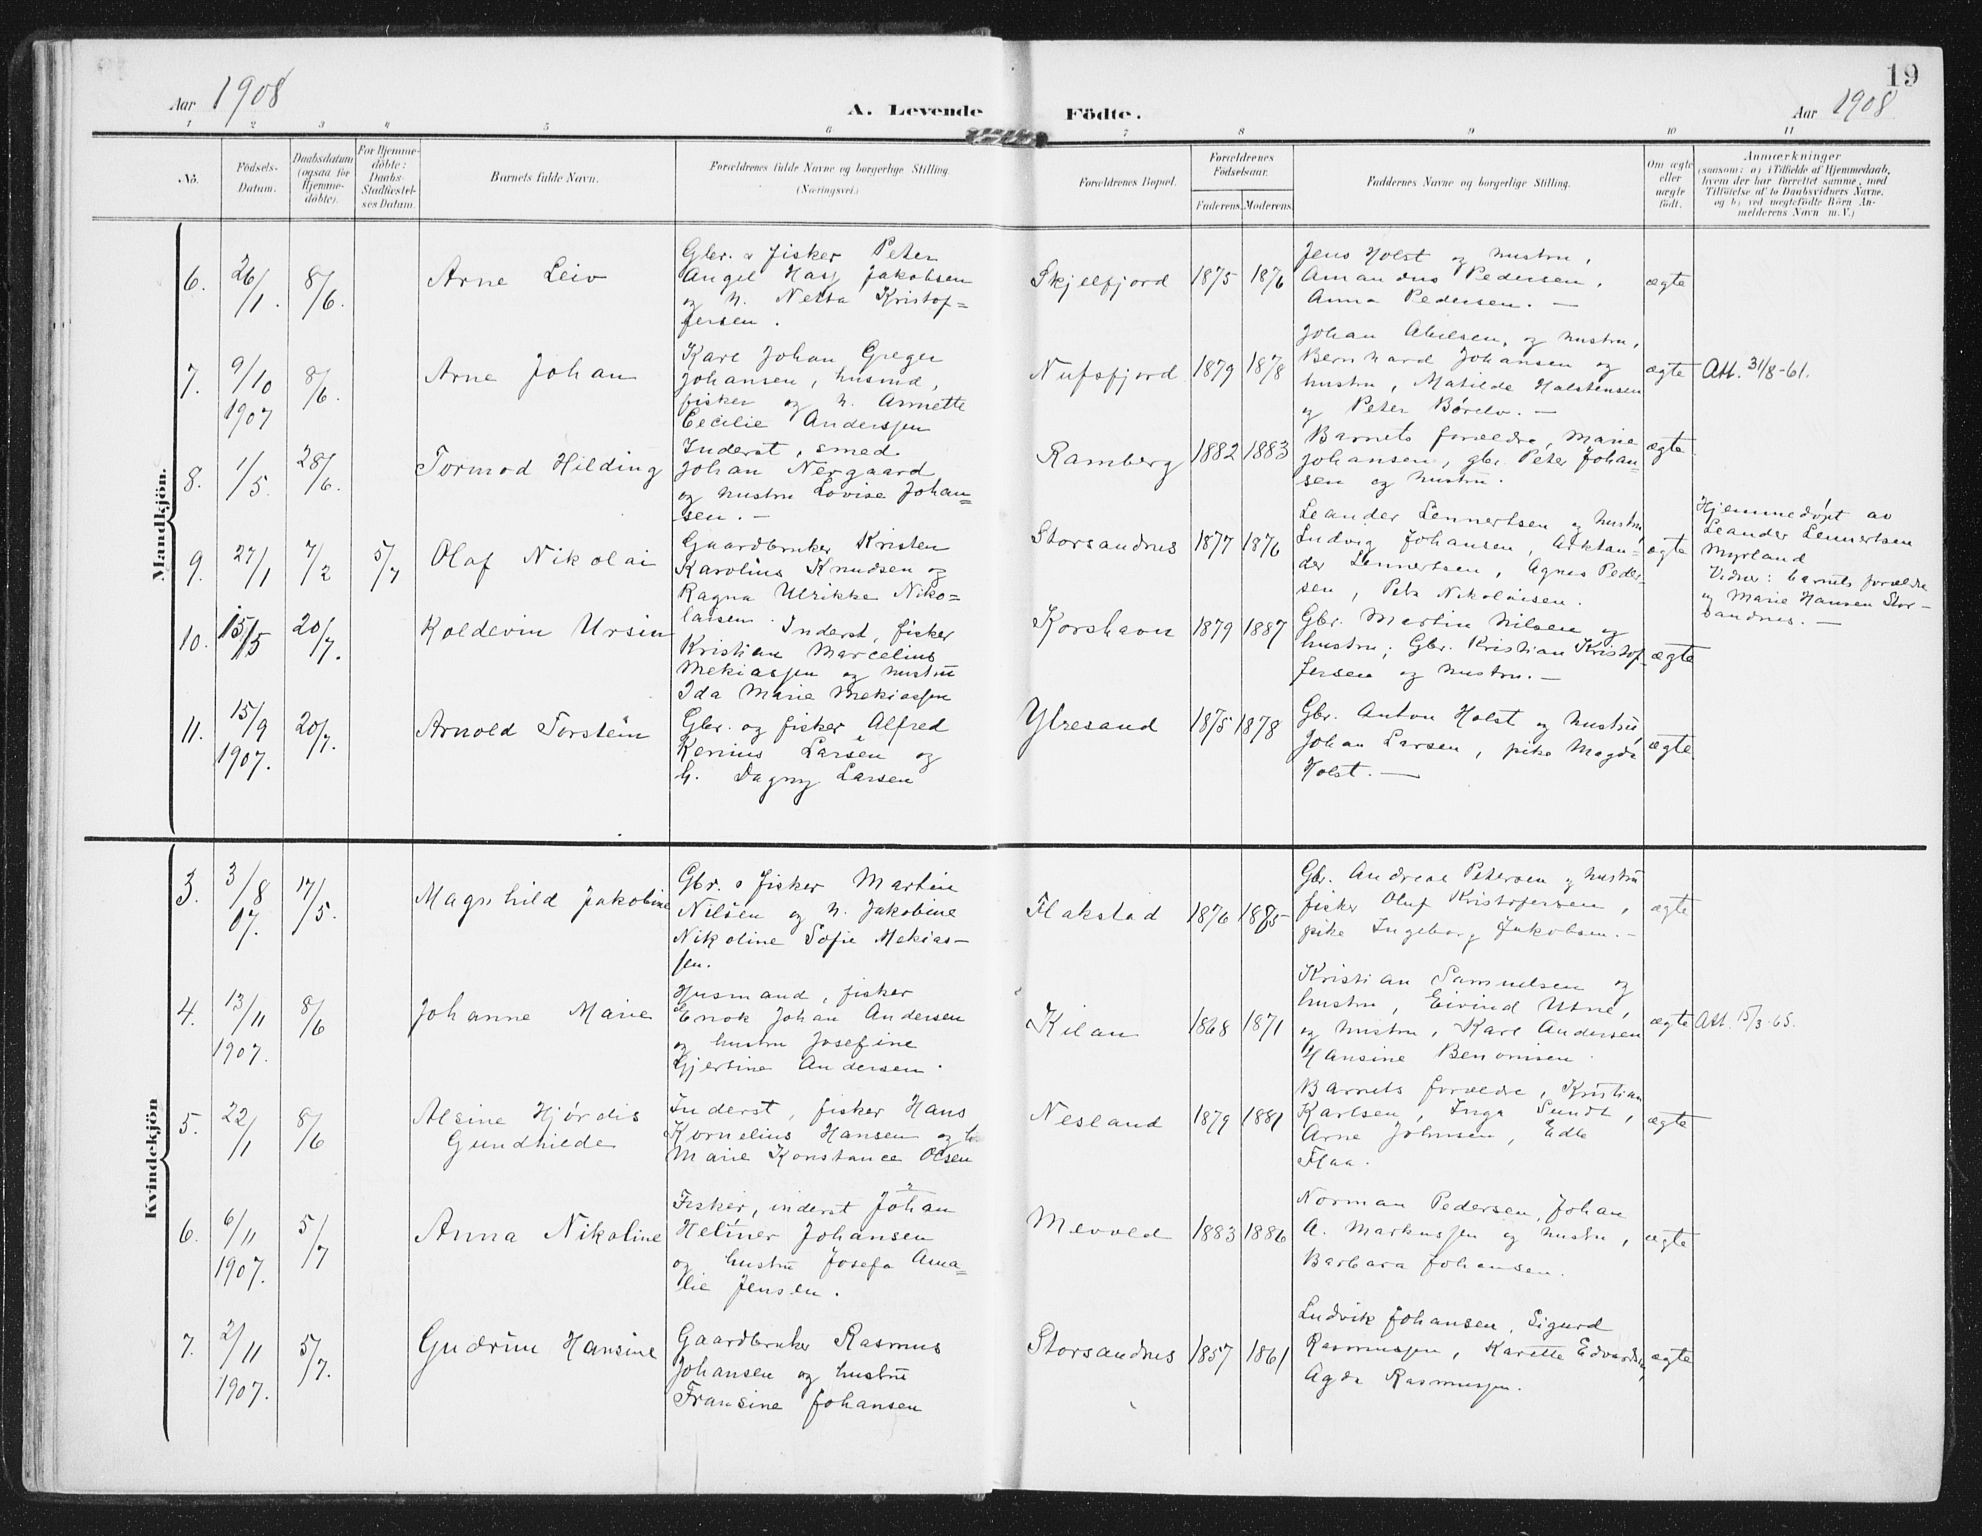 19
Aar 1908
A. Levende Födte.
Aar 1908
1 2 3 4 5 6 7 8 9 10 11
No.
Födsels-Datum.
Daabsdatum (ogsaa for Hjemme-döbte).
For Hjemme-döbte: Daabs-Stadfæstel-ses Datum.
Barnets fulde Navn.
Forældrenes fulde Navne og borgerlige Stilling. (Næringsvei.)
Forældrenes Bopæl.
Forældrenes Födselsaar.
Faderens. Moderens.
Faddernes Navne og borgerlige Stilling.
Om ægte eller uægte födt.
Anmærkninger
(saasom: a) i Tilfælde af Hjemmedaab,
hvem der har forrettet samme, med
Tilföielse af to Daabsvidners Navne,
og b) ved uægtefödte Börn An-
melderens Navn m. V.)
Mandkjön.
6. 26/1. 8/6. Arne Leiv
Gbr. & fisker Peter
Angel Hasz Jakobsen
og h. Netta Kristof=
fersen.
Skjelfjord 1875 1876
Jens Holst og hustru,
Amandus Pedersen,
Anna Pedersen. —
ægte
7. 9/10 1907 8/6. Arne Johan
Karl Johan Greger
Johansen, husmd,
fisker og h. Annette
Cecilie Anderssen
Nufsfjord 1879 1878
Johan Abelsen, og hustru,
Bernhard Johansen og
hustru, Matilde Halstensen
og Peter Børdv. —
ægte
Att. 31/8-61.
8. 1/5. 28/6. Tormod Hilding
Inderst, smed
Johan Nergaard
og hustru Lovise Johan=
sen. —
Ramberg 1882 1883
Barnets forældre, Marie
Johansen, gbr. Peter Johan=
sen og hustru.
ægte
9. 27/1 7/2 5/7 Olaf Nikolai
Gaardbruker Kristen
Karolius Knudsen og
Ragna Ulrikke Niko=
laisen.
Storsandnes 1877 1876
Leander Lennertsen og hustru,
Ludvig Johansen, Arktan=
der Lennertsen, Agnes Peder-
sen, Petra Nikolaisen.
ægte
Hjemmedøpt av
Leander Lennertsen
Myrland
Vidner: barnets forældre
og Marie Hansen Stor-
sandnes. —
10. 15/5 20/7. Koldevin Ursin
Inderst, fisker
Kristian Marcelius
Mekiassen og hustru
Ida Marie Mekiassen
Korshavn 1879 1887
Gbr. Martin Nilsen og
hustru; Gbr. Kristian Kristof-
fersen og hustru. —
ægte
11. 15/9 1907. 20/7. Arnold Torstein
Gbr. og fisker Alfred
Kerrius Larsen og
h. Dagny Larsen
Ytresand 1875 1878
Gbr. Anton Holst og hustru,
Johan Larsen, pike Magda
Holst. —
ægte
Kvindekjön
3. 3/8 07. 17/5. Magnhild Jakobine
Gbr. & fisker Martin
Nilsen og h. Jakobine
Nikoline Sofie Mekias-
sen.
Flakstad 1876 1885
Gbr. Andreas Petersen og hustru
fisker Oluf Kristofersen,
pike Ingeborg Jakobsen. -
ægte
4. 13/11 1907. 8/6 Johanne Marie
Husmand, fisker
Enok Johan Andersen
og hustru Josefine
Gjertine Andersen.
Kilan 1868 1871
Kristian Samuelsen og
hustru, Eivind Utne,
og hustru, Karl Andersen
Hansine Benonisen.
ægte
Att. 15/3-65.
5. 22/1 8/6 Alsine Hjørdis
Gundhilde
Inderst, fisker Hans
Kornelius Hansen og h.
Marie Konstance Olsen
Nesland 1879 1881
Barnets forældre, Kristian
Karlsen, Inga Sundt,
Arne Johnsen, Edle
Flaa.
ægte
6. 6/11 1907. 5/7 Anna Nikoline
Fisker, inderst Johan
Helmer Johansen
og hustru Josefa Ama=
lie Jensen.
Mevold 1883 1886
Norman Pedersen, Johan
A. Markussen og hustru,
Barbara Johansen.
ægte
7. 2/11 1907. 5/7. Gudrun Hansine
Gaardbruker Rasmus
Johansen og hustru
Fransine Johansen
Storsandnes 1857 1861
Ludvik Johansen, Sigurd
Rasmussen, Karette Edvardsen,
Agda Rasmussen.
ægte